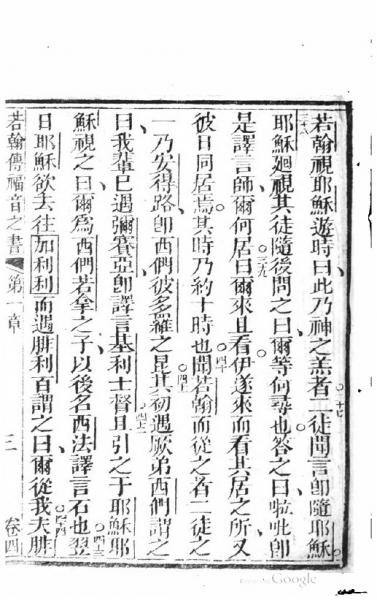 若翰視耶穌遊時曰此乃神之羔者二徒聞言卽隨耶穌
耶穌廻視其徒隨後問之曰爾等何尋也答之曰㕸吡卽
是譯言師爾何居曰爾來且看伊遂來而看其居之所又
彼日同居焉其時乃約十時也聞若翰而從之者二徒之
一乃安得路卽西們彼多羅之昆其初遇厥弟西們謂之
曰我輩已遇彌賽亞卽譯言基利士督且引之于耶穌耶
穌視之曰爾爲西們若拿之子以後名西法譯言石也翌
日耶穌欲去往加利利而遇腓利百謂之曰爾從我夫腓
若翰傳福音之書 第一章 三 卷四
Google